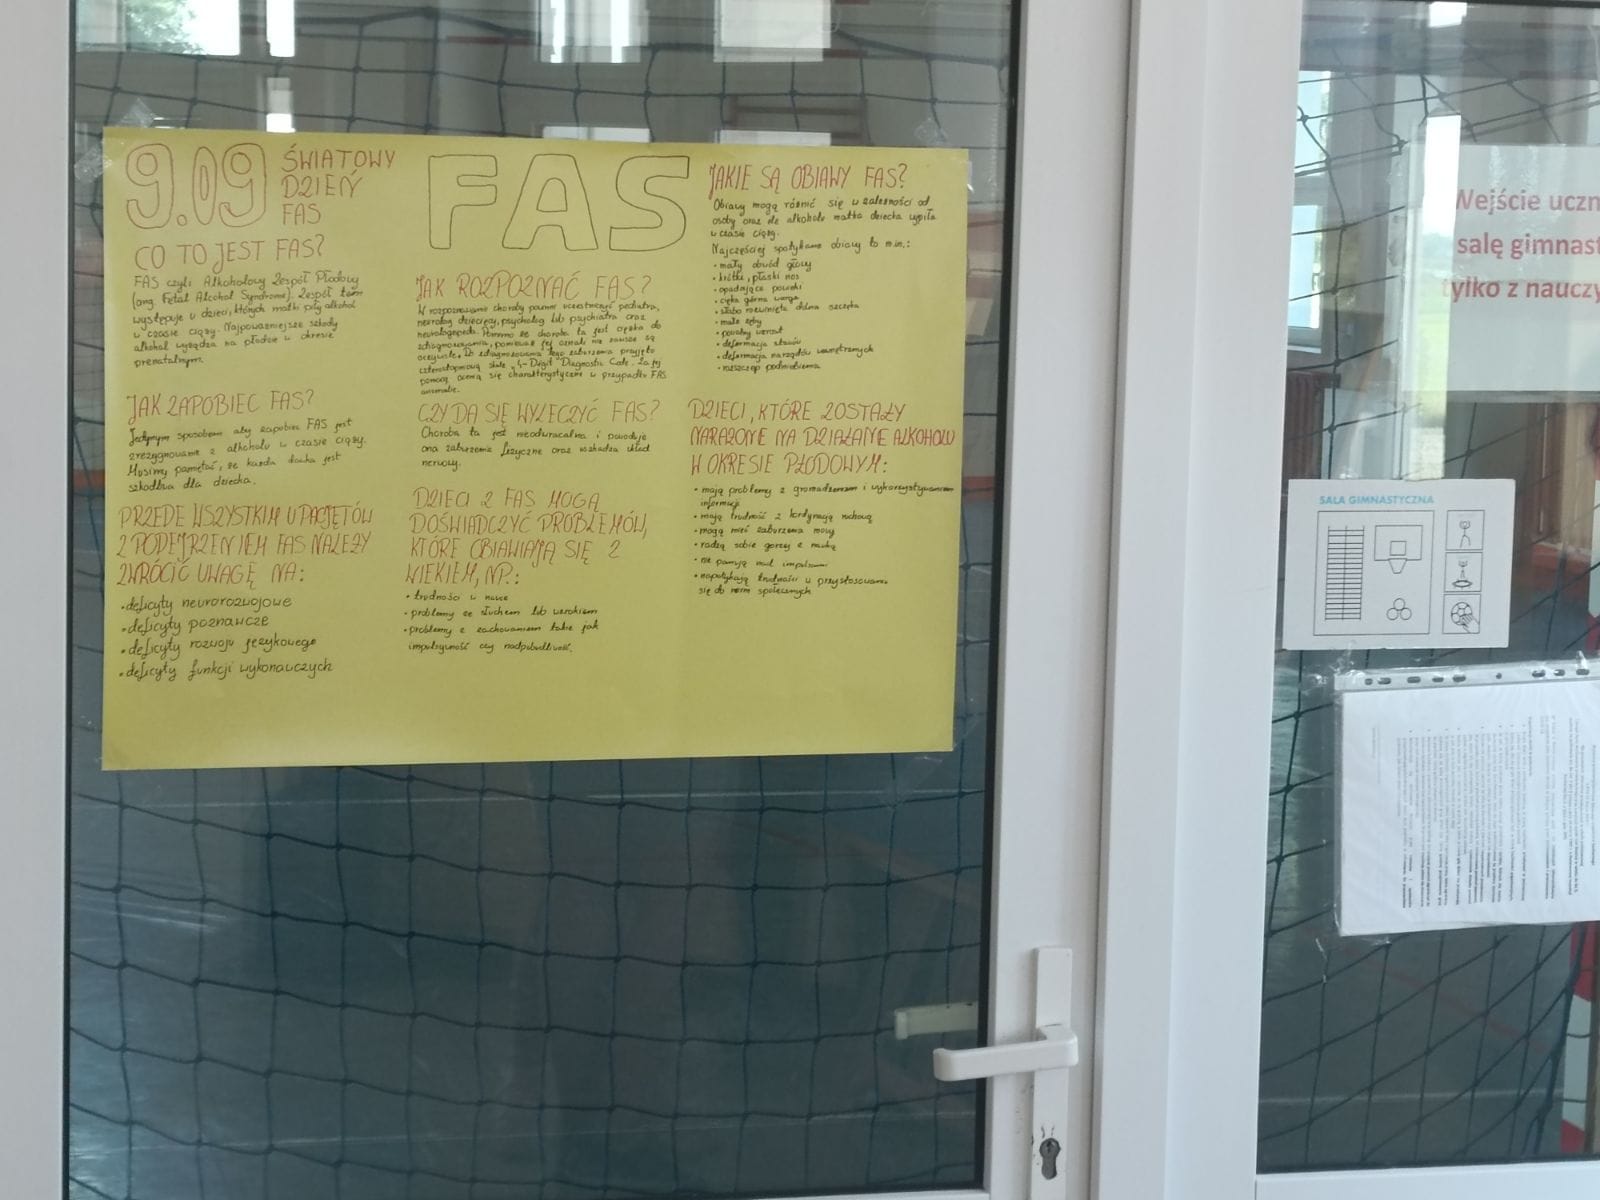 9.09 ŚWIATOWY
DZIEŃ
FAS
FAS
CO TO JEST FAS?
FAS czyli Alkoholowy Zespół Płodowy
(ang. Fetal Alcohol Syndrome). Zespół ten
występuje u dzieci, których matki piły alkohol
w czasie ciąży. Najpoważniejsze szkody
alkohol wyrządza na płodzie w okresie
prenatalnym.
JAK ZAPOBIEC FAS?
Jedynym sposobem aby zapobiec FAS jest
zrezygnowanie z alkoholu w czasie ciąży.
Musimy pamiętać, że każda dawka jest
szkodliwa dla dziecka.
PRZEDE WSZYSTKIM U PACJĘTÓW
Z PODEJRZENIEM FAS NALEŻY
ZWRÓCIĆ UWAGĘ NA:
• deficyty neurorozwojowe
• deficyty poznawcze
• deficyty rozwoju językowego
• deficyty funkcji wykonawczych
JAK ROZPOZNAĆ FAS?
W rozpoznawaniu choroby powinni uczestniczyć pediatra,
neurolog dziecięcy, psycholog lub psychiatra oraz
neurologopeda. Pomimo że choroba ta jest ciężka do
zdiagnozowania, ponieważ jej oznaki nie zawsze są
oczywiste. Do zdiagnozowania tego zaburzenia przyjęto
czterostopniową skalę „4-Digit Diagnostic Code. Za jej
pomocą ocenia się charakterystyczne w przypadku FAS
anomalie.
CZY DA SIĘ WYLECZYĆ FAS?
Choroba ta jest nieodwracalna i powoduje
ona zaburzenia fizyczne oraz uszkadza układ
nerwowy.
DZIECI Z FAS MOGĄ
DOŚWIADCZYĆ PROBLEMÓW,
KTÓRE OBIAWIAJĄ SIĘ Z
WIEKIEM, NP.:
• trudności w nauce
• problemy ze słuchem lub wzrokiem
• problemy z zachowaniem takie jak
impulsywność czy nadpobudliwość.
JAKIE SĄ OBIAWY FAS?
Obiawy mogą różnić się w zależności od
osoby oraz ile alkoholu matka dziecka wypiła
w czasie ciąży.
Najczęściej spotykane obiawy to m.in.:
• mały obwód głowy
• krótki, płaski nos
• opadające powieki
• cięka górna warga
• słabo rozwinięta dolna szczęka
• małe zęby
• powolny wzrost
• deformacja stawów
• deformacja narządów wewnętrznych
• rozszczep podniebienia
DZIECI, KTÓRE ZOSTAŁY
NARAŻONE NA DZIAŁANIE ALKOHOLU
W OKRESIE PŁODOWYM:
• mają problemy z gromadzeniem i wykorzystywaniem
informacji
• mają trudność z kordynacją ruchową
• mogą mieć zaburzenia mowy
• radzą sobie gorzej z nauką
• nie panują nad impulsami
• napotykają trudności w przystosowaniu
się do norm społecznych
Wejście uczn
salę gimnast
tylko z nauczy
SALA GIMNASTYCZNA